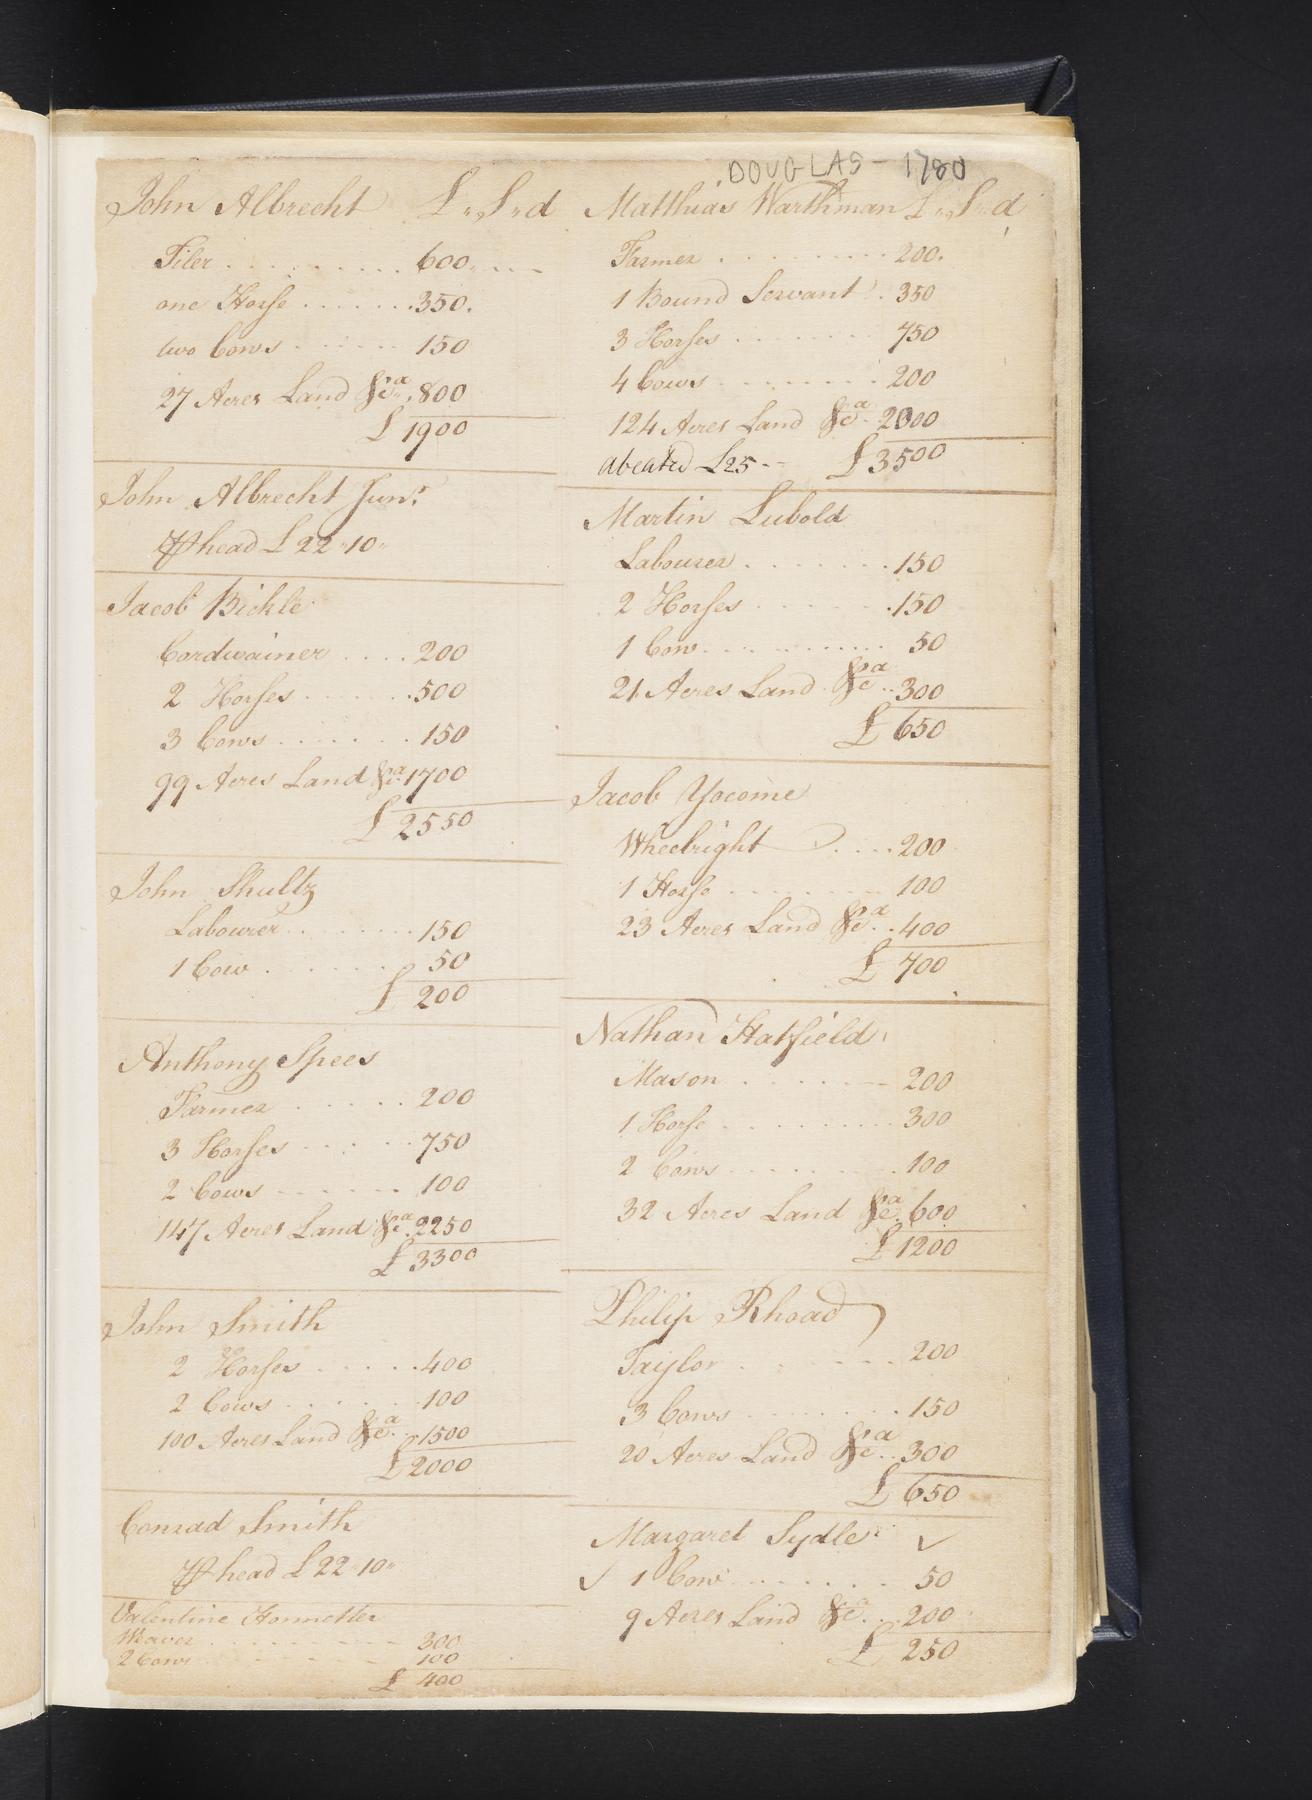 DOUGLAS - 1780
John Albrecht £ „ S „ d
Tiler 600
one Horse 350
two Cows 150
27 Acres Land &ca 800
£ 1900
John Albrecht Junr
℔ head £ 22 „ 10 „
Jacob Bickle
Cordwainer 200
2 Horses 500
3 Cows 150
99 Acres Land &ca 1700
£ 2550
John Shultz
Labourer 150
1 Cow 50
£ 200
Anthony Spees
Farmer 200
3 Horses 750
2 Cows 100
147 Acres Land &ca 2250
£ 3300
John Smith
2 Horses 400
2 Cows 100
100 Acres Land &ca 1500
£ 2000
Conrad Smith
℔ head £ 22 „ 10 „
Valentine
Weaver 300
2 Cows 100
£ 400
Matthias Warthman £ „ S „ d
Farmer 200
1 Bound Servant 350
3 Horses 750
4 Cows 200
124 Acres Land &ca 2000
abeated £ 25 £ 3500
Martin Lubold
Labourer 150
2 Horses 150
1 Cow 50
21 Acres Land &ca 300
£ 650
Jacob Yocome
Wheelright 200
1 Horse 100
23 Acres Land &ca 400
£ 700
Nathan Hatfield
Mason 200
1 Horse 300
2 Cows 100
32 Acres Land &ca 600
£ 1200
Philip Rhoad
Taylor 200
3 Cows 150
20 Acres Land &ca 300
£ 650
Margaret Sydle ✓
✓ 1 Cow 50
9 Acres Land &ca 200
£ 250